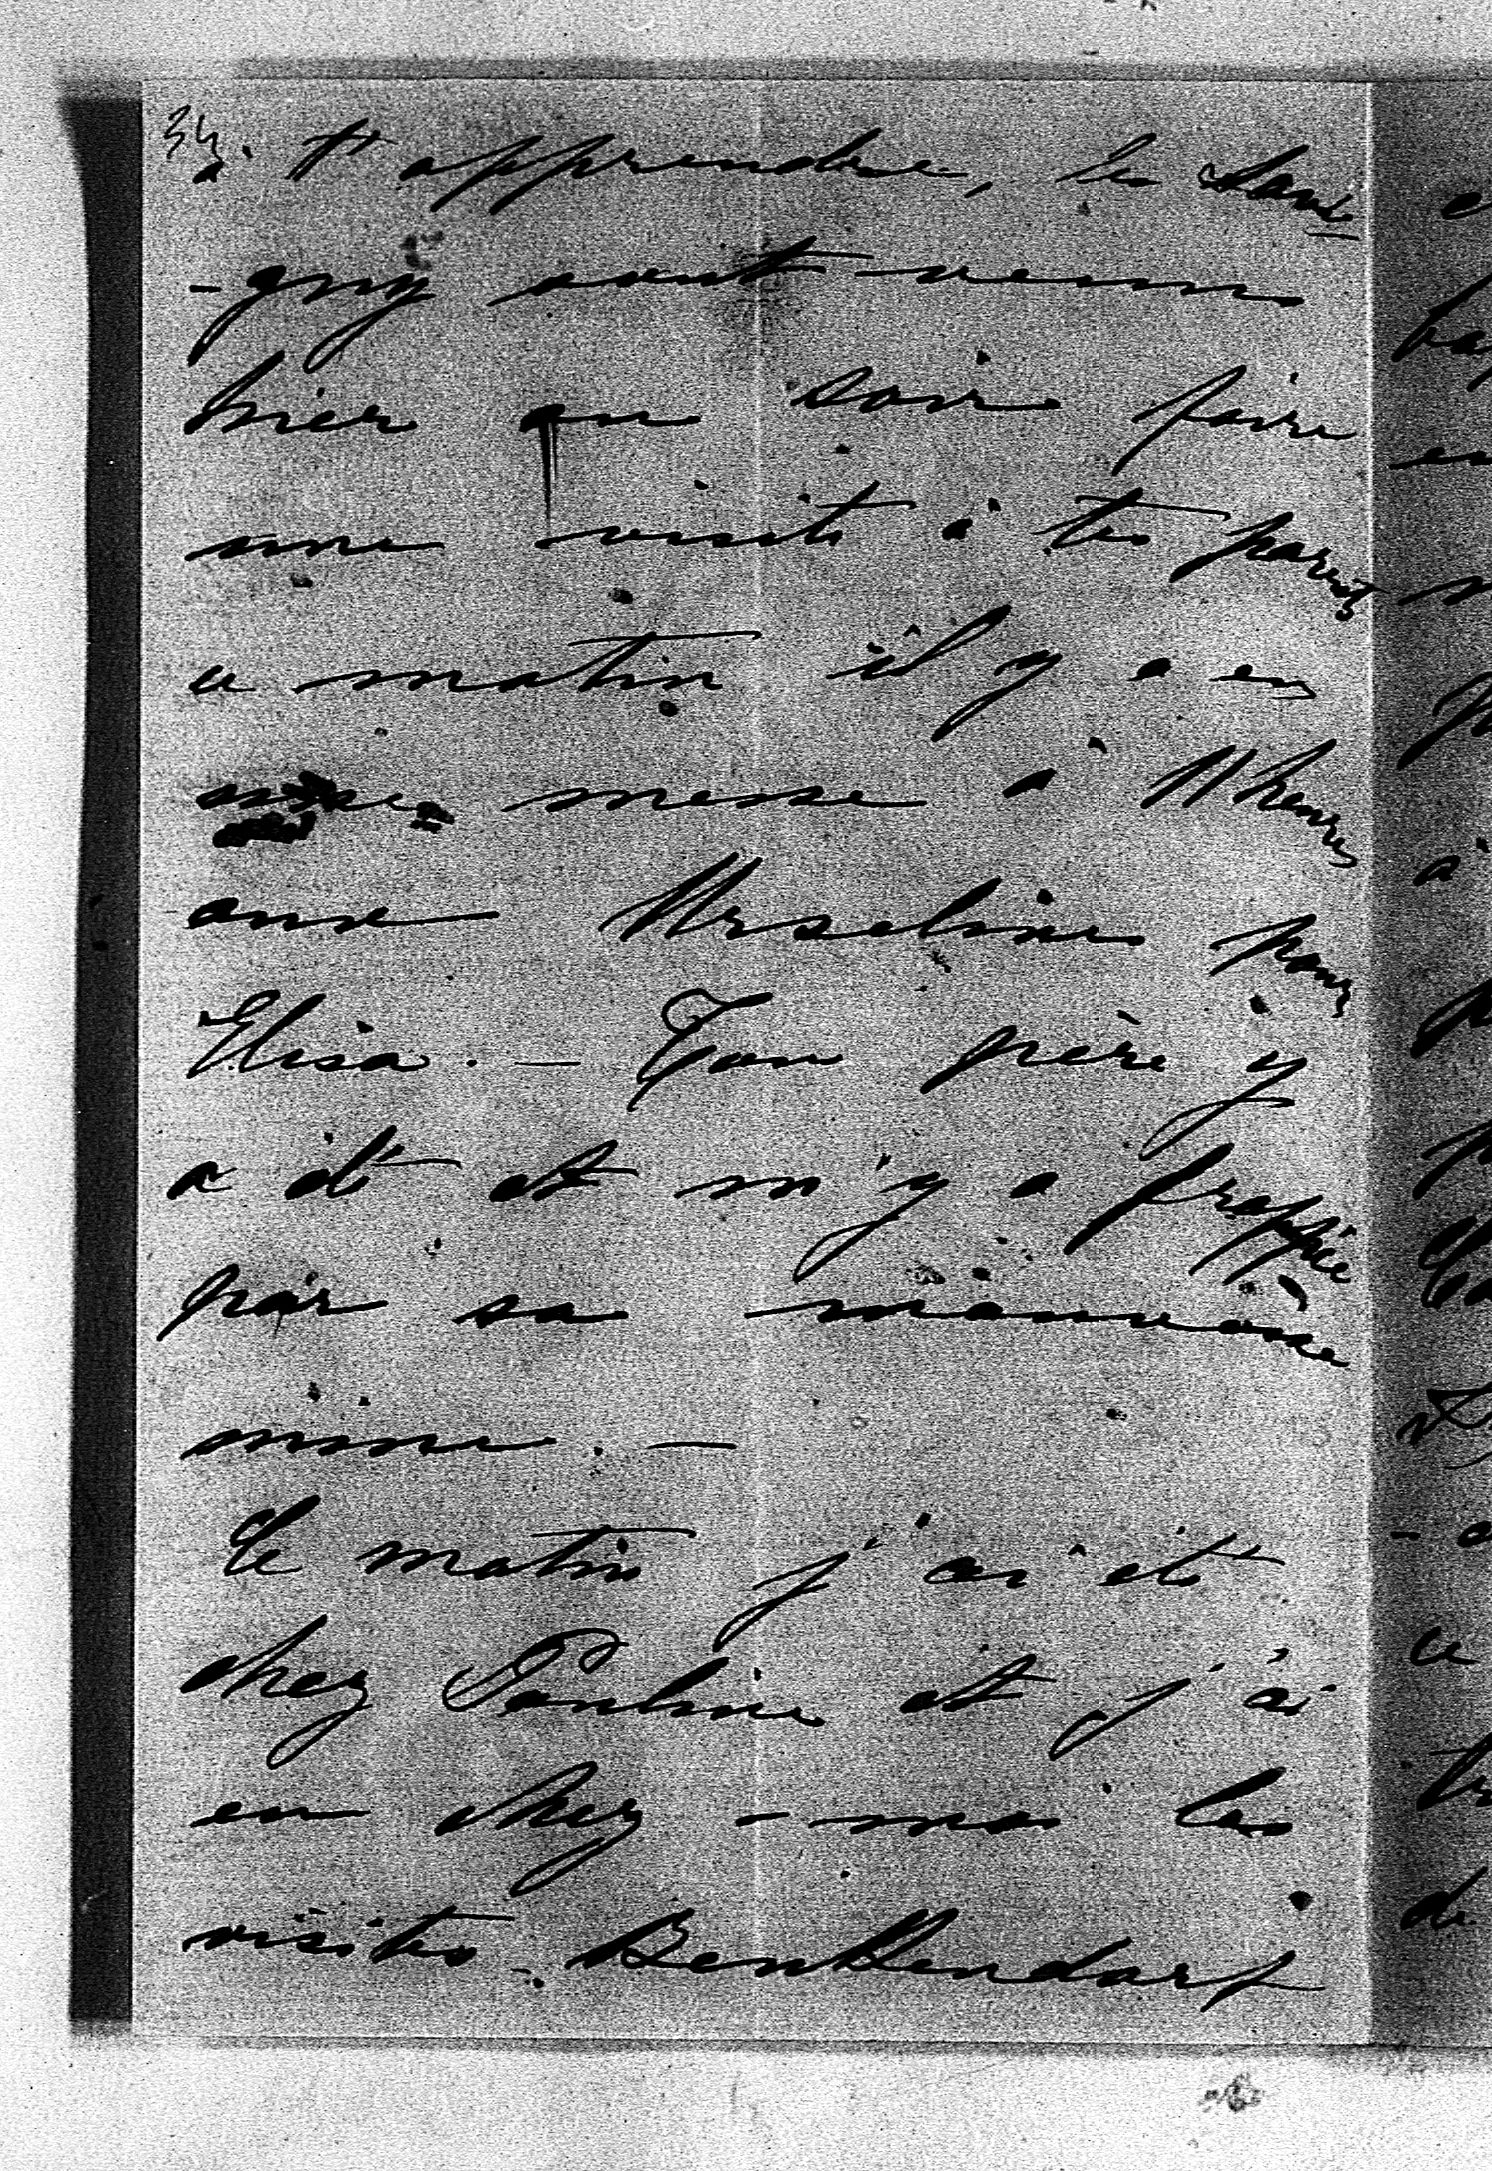 34. t'apprendre, les Savi
-gny sont venus
hier au soir faire
une visite à tes parents
ce matin il y a eu
une messe à 11 heures
aux Ursulines pour
Elisa. — Ton père y
a été et m'y a frappée
par sa mauvaise
mine. —
Le matin j'ai été
chez Pauline et j'ai
eu chez-moi les
visites. Benkendorf